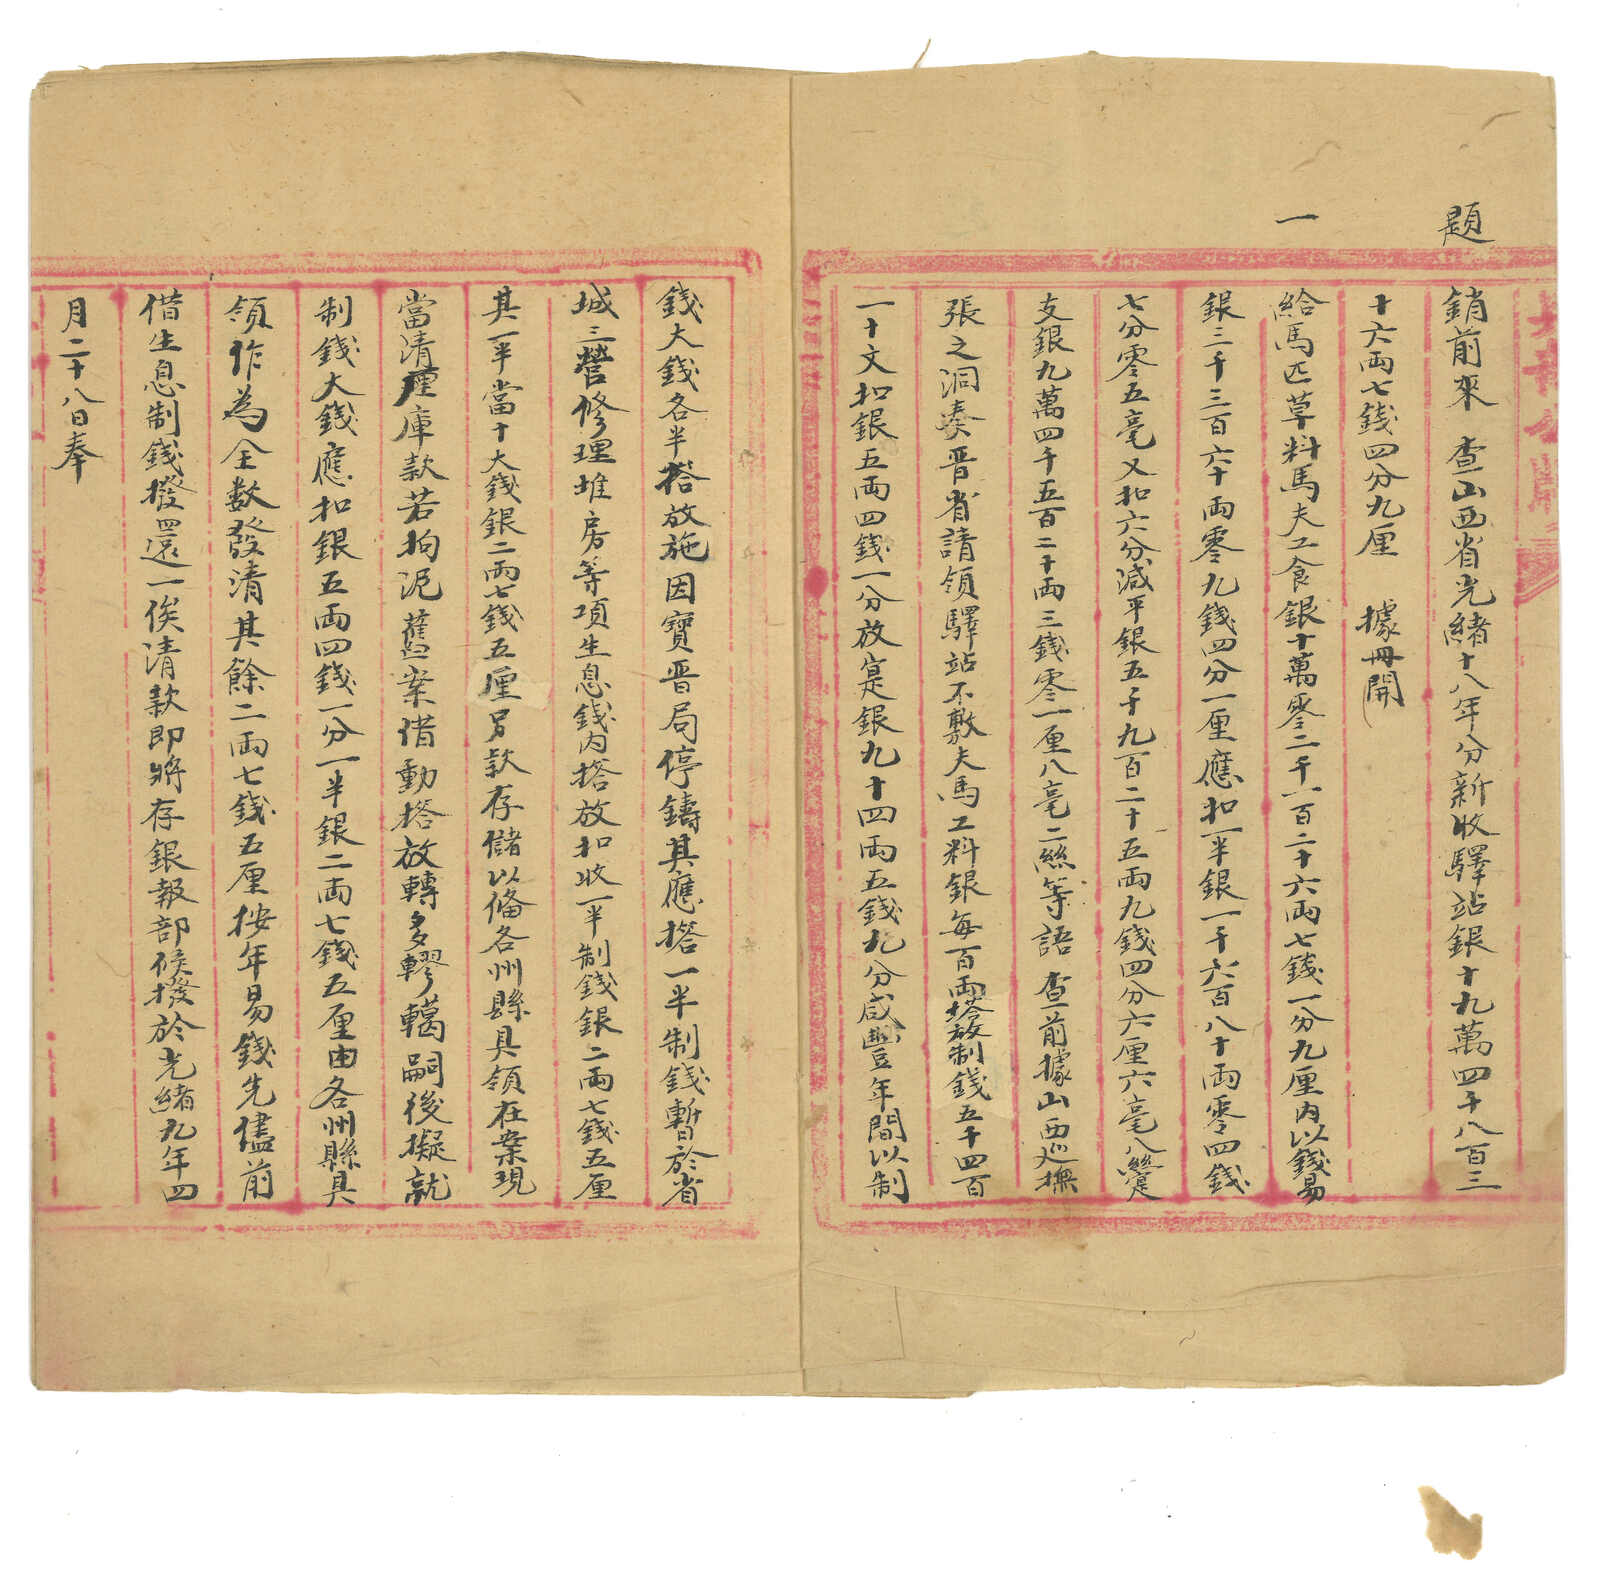 題
銷前來　查山西省光緒十八年分新收驛站銀十九萬四千八百三
十六兩七錢四分九厘　據冊開
一
給馬匹草料馬夫工食銀十萬零二千一百二十六兩七錢一分九厘內以錢易
銀三千三百六十兩零九錢四分一厘應扣一半銀一千六百八十兩零四錢
七分零五毫又扣六分減平銀五千九百二十五兩九錢四分六厘六毫八絲寔
支銀九萬四千五百二十兩三錢零一厘八毫二絲等語　查前據山西巡撫
張之洞奏晋省請領驛站不敷夫馬工料銀每百兩搭放制錢五千四百
一十文扣銀五兩四錢一分放寔銀九十四兩五錢九分咸豐年間以制
錢大錢各半搭放施因寶晋局停鑄其應搭一半制錢暫於省
城三營修理堆房等項生息錢內搭放扣收一半制錢銀二兩七錢五厘
其一半當十大錢銀二兩七錢五厘另款存儲以俻各州縣具領在案現
當清厘庫款若拘泥舊案借動搭放轉多轇轕嗣後擬就
制錢大錢應扣銀五兩四錢一分一半銀二兩七錢五厘由各州縣具
領作為全數發清其餘二兩七錢五厘按年易錢先儘前
借生息制錢撥還一俟清款即將存銀報部候撥於光緒九年四
月二十八日奉